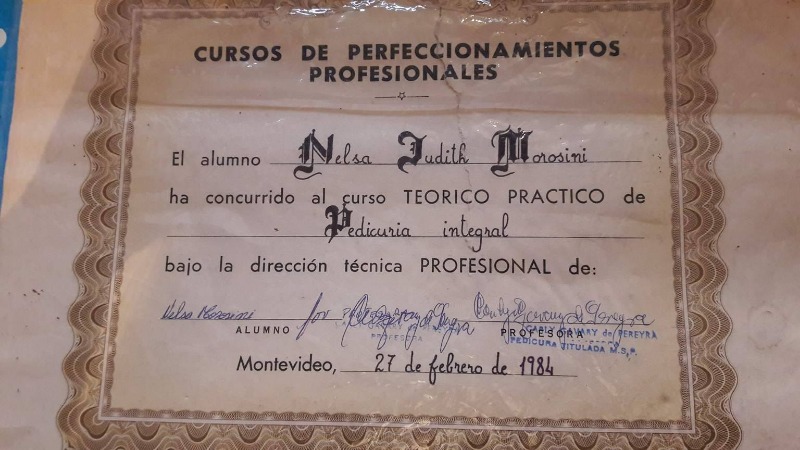 CURSOS DE PERFECCIONAMIENTOS
PROFESIONALES
El alumno Nelsa Judith Morosini
ha concurrido al curso TEORICO PRACTICO de
Pedicuria integral
bajo la dirección técnica PROFESIONAL de:
Nelsa Morosini por
ALUMNO PROFESORA PROFESORA
de PEREYRA
PEDICURA TITULADA M.S.P.
Montevideo, 27 de febrero de 1984